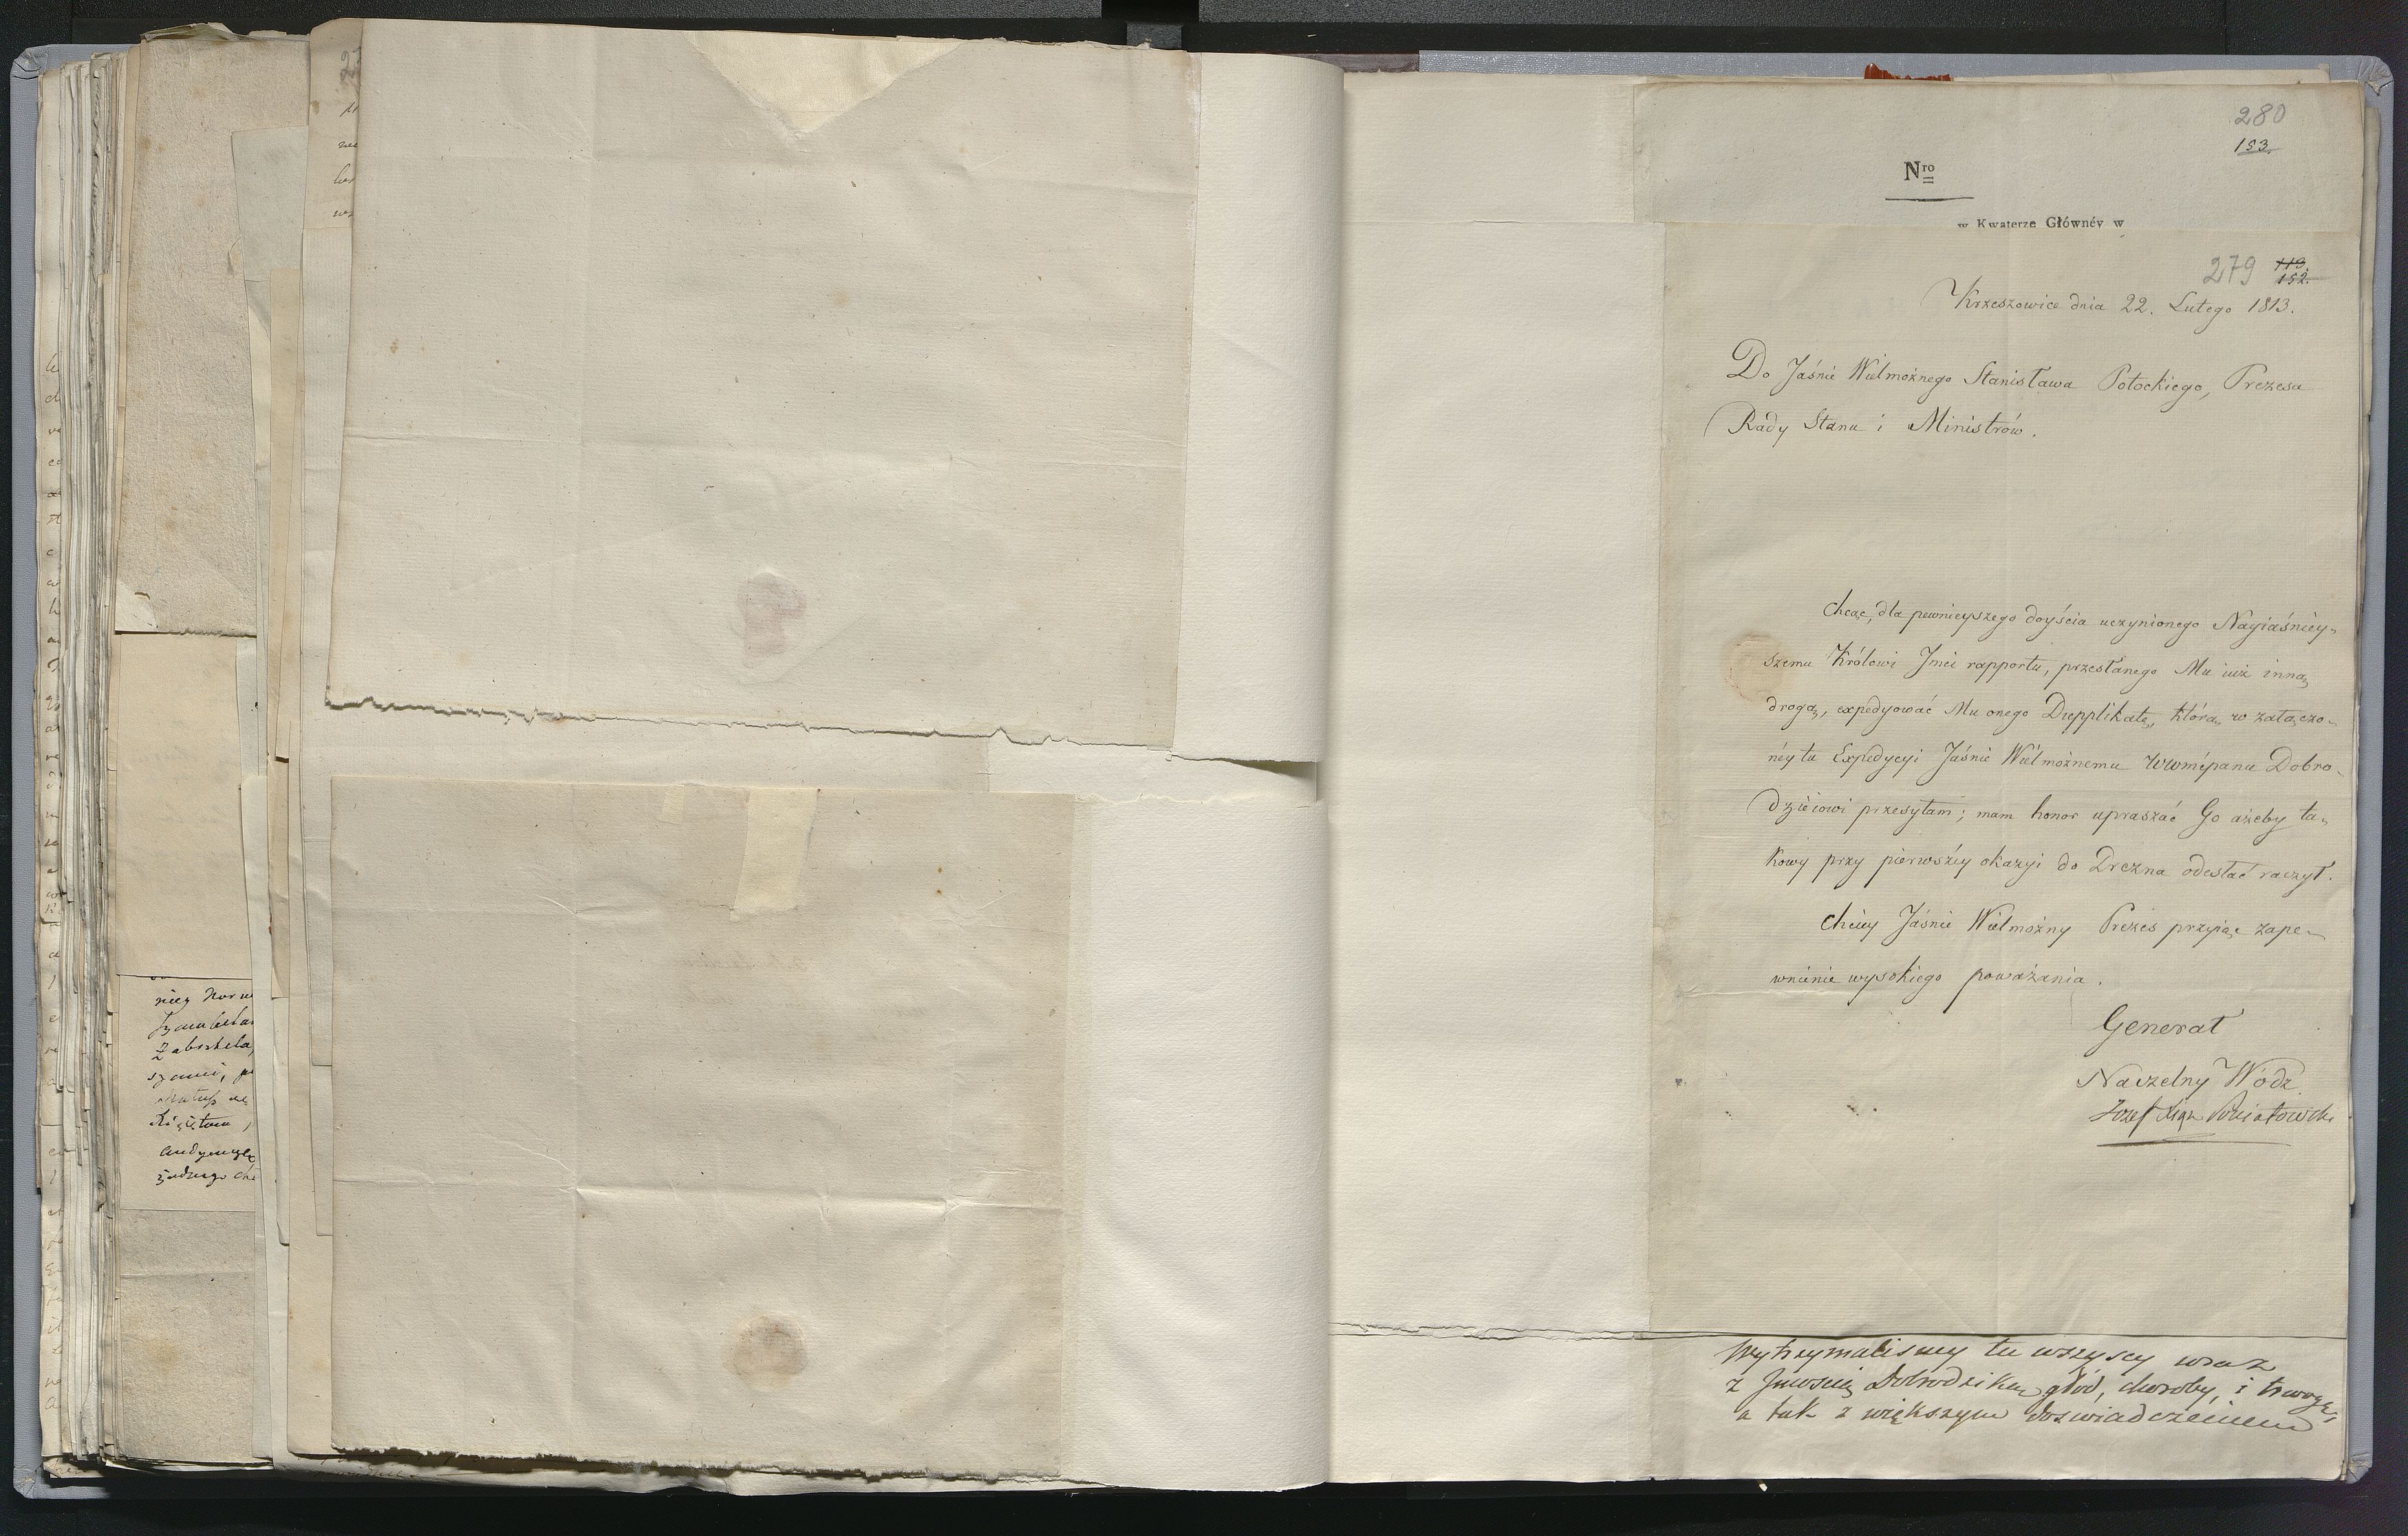 280
153.
Nro
w Kwaterze Głównéy w
279 119.
152.
Krzeszowice dnia 22. Lutego 1813.
Do Jaśnie Wielmożnego Stanisława Potockiego, Prezesa
Rady Stanu i Ministrów.
Chcąc, dla pewnieyszego doyścia uczynionego Nayiaśniey-
szemu Królowi Jmći rapportu, przesłanego Mu iuż inną
drogą, expedyować Mu onego Dupplikatę, którą w załączo-
néy tu Expedycyi Jaśnie Wielmożnemu WWmćpanu Dobro-
dzieiowi przesyłam; mam honor upraszać Go ażeby ta-
kowy przy pierwszéy okazyi do Drezna odesłać raczył.
Chciéy Jaśnie Wielmożny Prezes przyiąć zape-
wnienie wysokiego poważania.
Generał
Naczelny Wódz
Józef Xiąże Poniatowski
Wytrzymalismy tu wszyscy wraz
z Jmością Dobrodziką głód, choroby, i trwogę,
a tak z większym doswiadczeniem
niey
Zabrkela,
szami,
żadnego